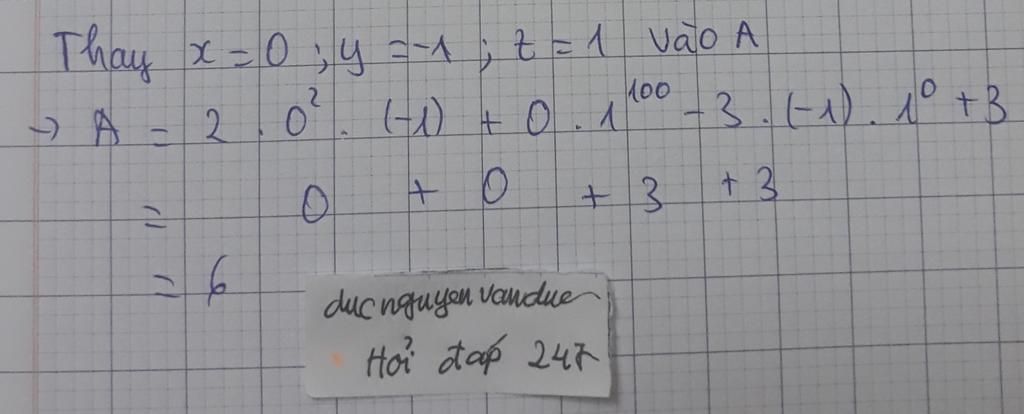 Thay x = 0 ; y = -1 ; z = 1 vào A
→ A = 2 . 0² . (-1) + 0 . 1¹⁰⁰ - 3 . (-1) . 1⁰ + 3
= 0 + 0 + 3 + 3
= 6
ducnguyenvanduc
Hỏi đáp 247